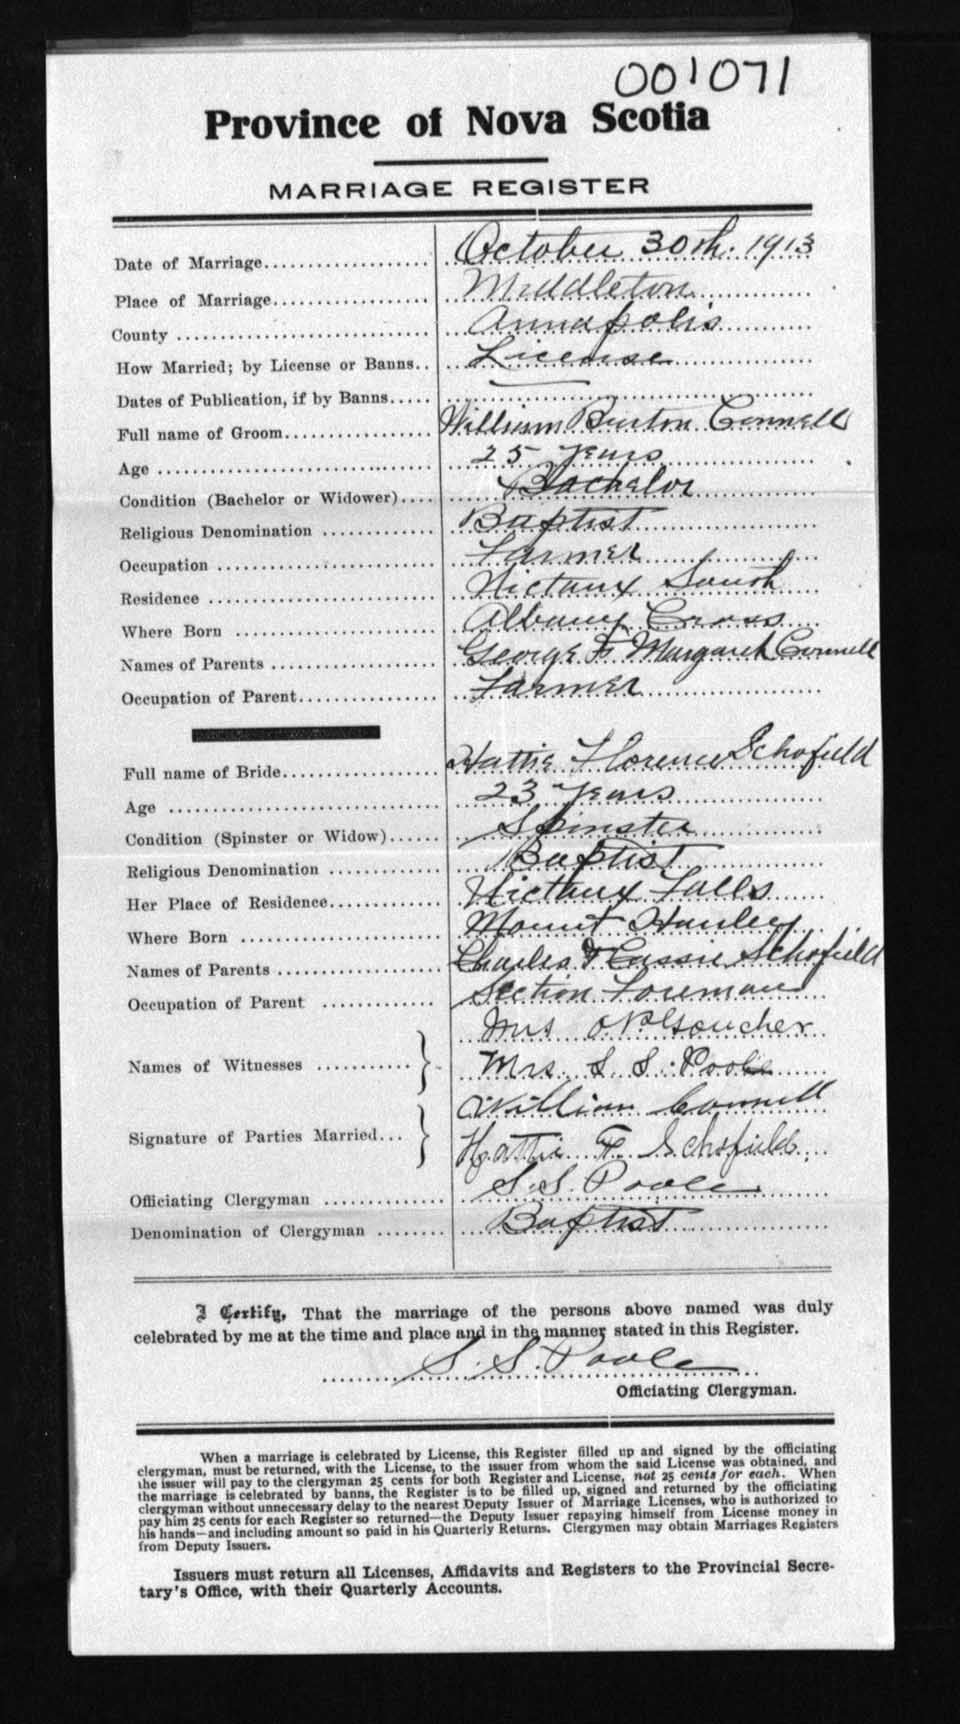 001071
Province of Nova Scotia
MARRIAGE REGISTER
Date of Marriage October 30th 1913
Place of Marriage Middleton
County Annapolis
How Married; by License or Banns License
Dates of Publication, if by Banns
Full name of Groom William Burton Connell
Age 25 years
Condition (Bachelor or Widower) Bachelor
Religious Denomination Baptist
Occupation Farmer
Residence Nictaux South
Where Born Albany Cross
Names of Parents George & Margaret Connell
Occupation of Parent Farmer
Full name of Bride Hattie Florence Schofield
Age 23 years
Condition (Spinster or Widow) Spinster
Religious Denomination Baptist
Her Place of Residence Nictaux Falls
Where Born Mount Hanley
Names of Parents Charles & Cassie Schofield
Occupation of Parent Section Foreman
Mrs O P Goucher
Names of Witnesses } Mrs. S. S. Poole
William Connell
Signature of Parties Married } Hattie F. Schofield
Officiating Clergyman S. S. Poole
Denomination of Clergyman Baptist
I Certify, That the marriage of the persons above named was duly
celebrated by me at the time and place and in the manner stated in this Register.
S. S. Poole
Officiating Clergyman.
When a marriage is celebrated by License, this Register filled up and signed by the officiating
clergyman, must be returned, with the License, to the issuer from whom the said License was obtained, and
the issuer will pay to the clergyman 25 cents for both Register and License, not 25 cents for each. When
the marriage is celebrated by banns, the Register is to be filled up, signed and returned by the officiating
clergyman without unnecessary delay to the nearest Deputy Issuer of Marriage Licenses, who is authorized to
pay him 25 cents for each Register so returned—the Deputy Issuer repaying himself from License money in
his hands—and including amount so paid in his Quarterly Returns. Clergymen may obtain Marriages Registers
from Deputy Issuers.
Issuers must return all Licenses, Affidavits and Registers to the Provincial Secre-
tary's Office, with their Quarterly Accounts.